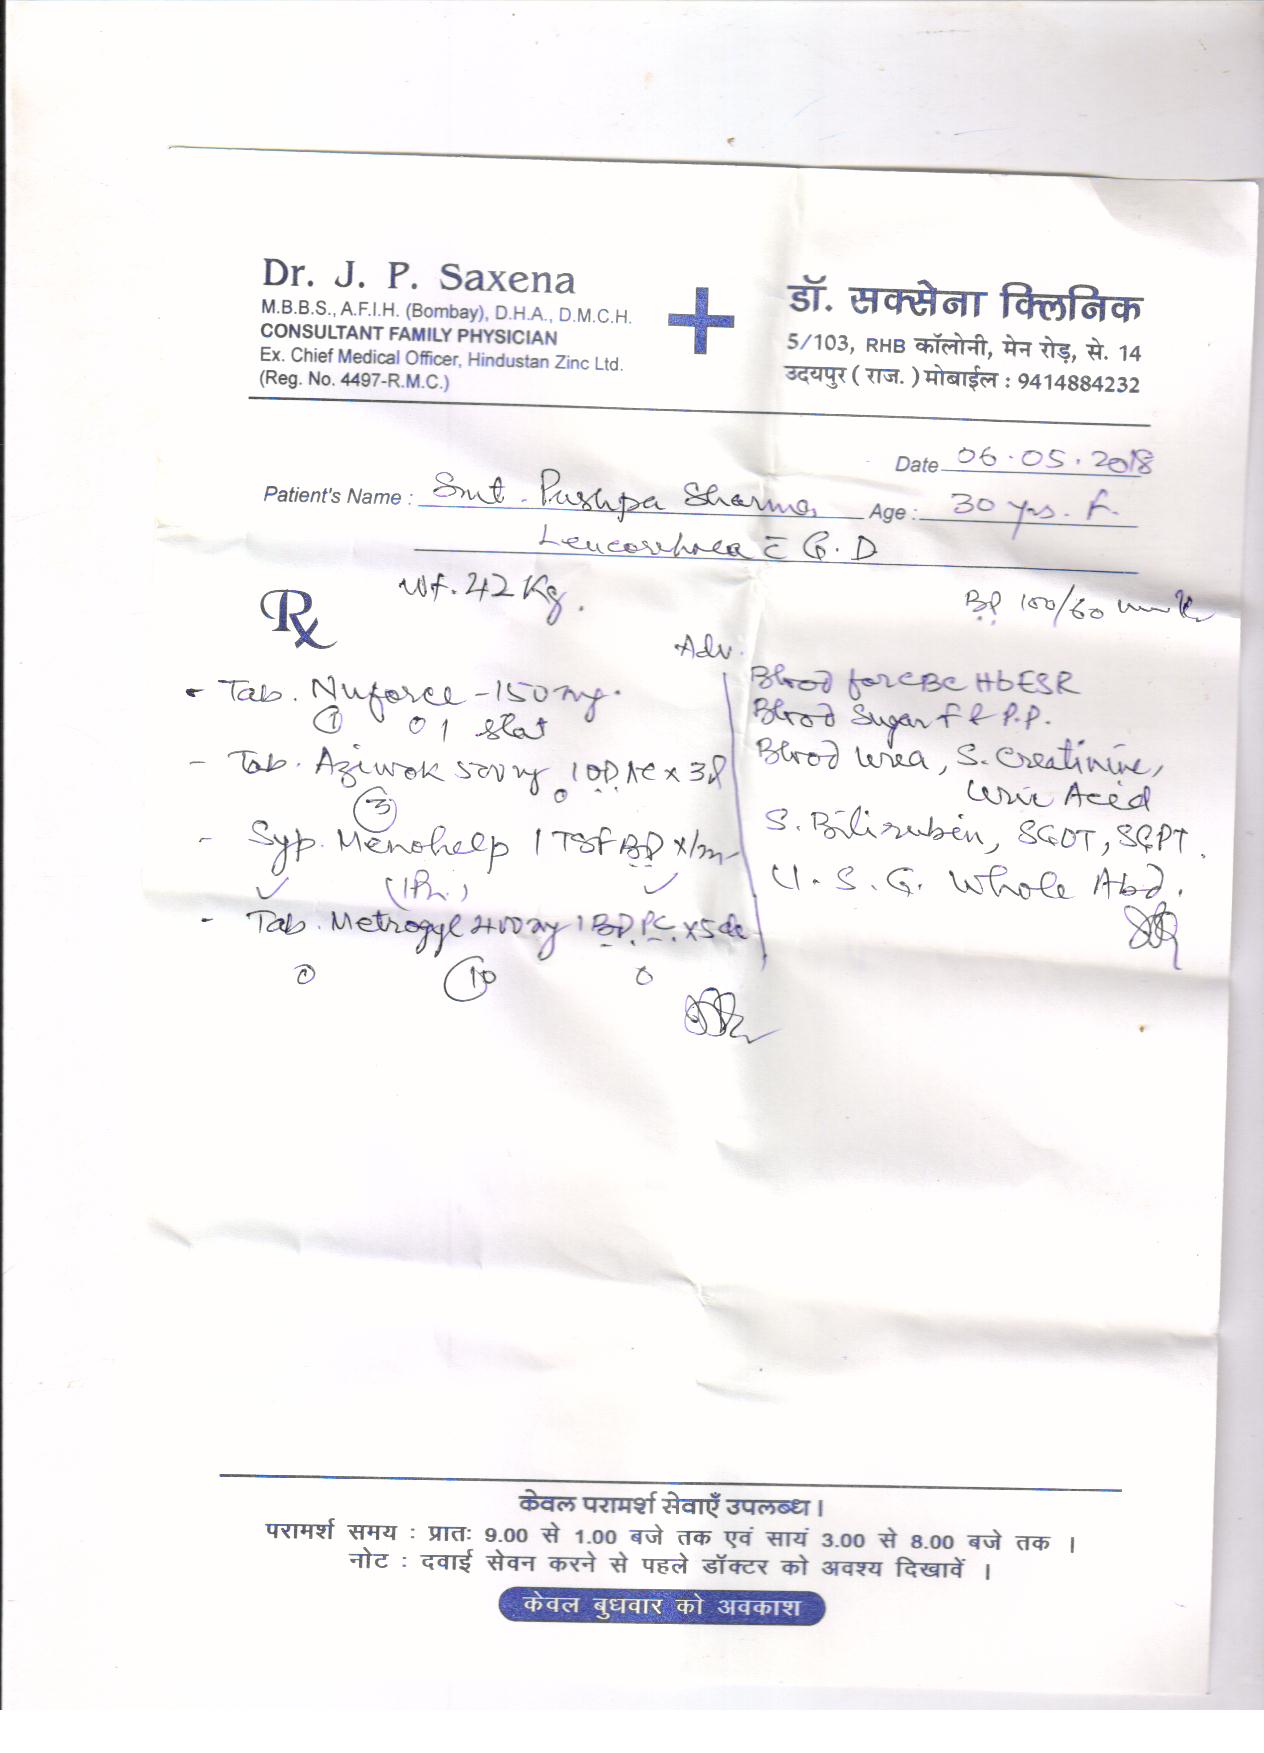 Dr. J. P. Saxena
M.B.B.S., A.F.I.H. (Bombay), D.H.A., D.M.C.H.
CONSULTANT FAMILY PHYSICIAN
Ex. Chief Medical Officer, Hindustan Zinc Ltd.
(Reg. No. 4497-R.M.C.)
डॉ. सक्सेना क्लिनिक
5/103, RHB कॉलोनी, मेन रोड़, से. 14
उदयपुर ( राज. ) मोबाईल : 9414884232
Date 06.05.2018
Patient's Name : Smt. Pushpa Sharma Age : 30 yrs. F.
Leucorrhoea c̄ G.D
Wt. 42 Kg.
BP 100/60
Rx
- Tab. Nuforce -150 mg.
① 0 1 stat
- Tab. Aziwok 500 mg 1 OD AC x 3d
③
- Syp. Menohelp 1 TSF BD x 1m
(1Ph.)
- Tab. Metrogyl 400 mg 1 BD PC x 5d
0 ⑩ 0
Adv.
Blood for CBC Hb ESR
Blood Sugar F & P.P.
Blood Urea, S. Creatinine,
Uric Acid
S. Bilirubin, SGOT, SGPT.
U.S.G. Whole Abd.
केवल परामर्श सेवाएँ उपलब्ध।
परामर्श समय : प्रातः 9.00 से 1.00 बजे तक एवं सायं 3.00 से 8.00 बजे तक ।
नोट : दवाई सेवन करने से पहले डॉक्टर को अवश्य दिखावें ।
केवल बुधवार को अवकाश